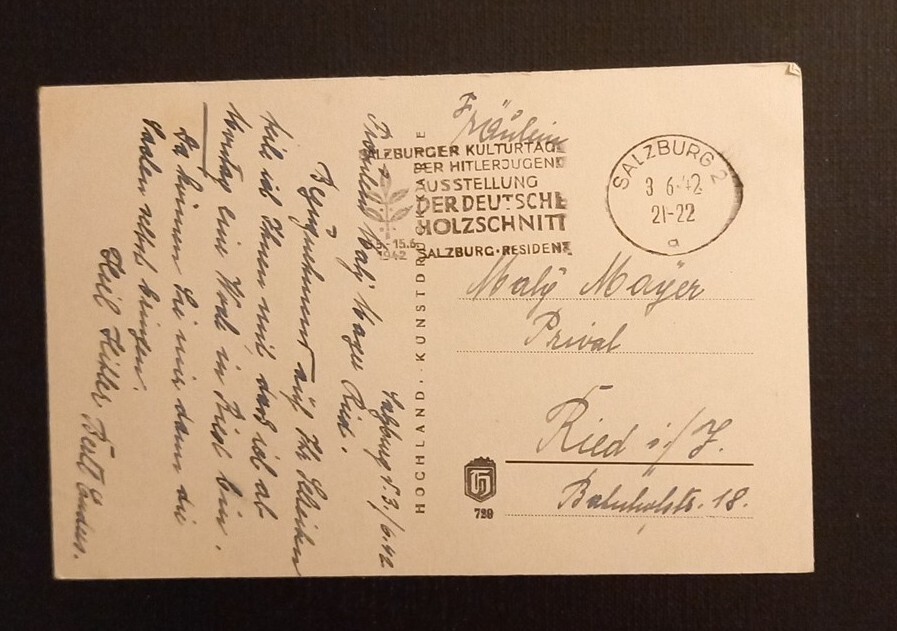 Salzburg d. 3./6.42
Fräulein Maly Mayer Ried.
Bezugnehmend auf Ihr Schreiben
teile ich Ihnen mit, daß ich ab
Montag eine Woche in Ried bin.
Da können Sie mir dann die
Sachen selbst bringen.
Heil Hitler
HOCHLAND · KUNSTDRUCKKARTE
SALZBURGER KULTURTAGE
DER HITLERJUGEND
AUSSTELLUNG
DER DEUTSCHE
HOLZSCHNITT
15.6.
1942 SALZBURG · RESIDENZ
SALZBURG 2
3 6.42
21-22
a
Fräulein
Maly Mayer
Privat
Ried i/I.
Bahnhofstr. 18.
739